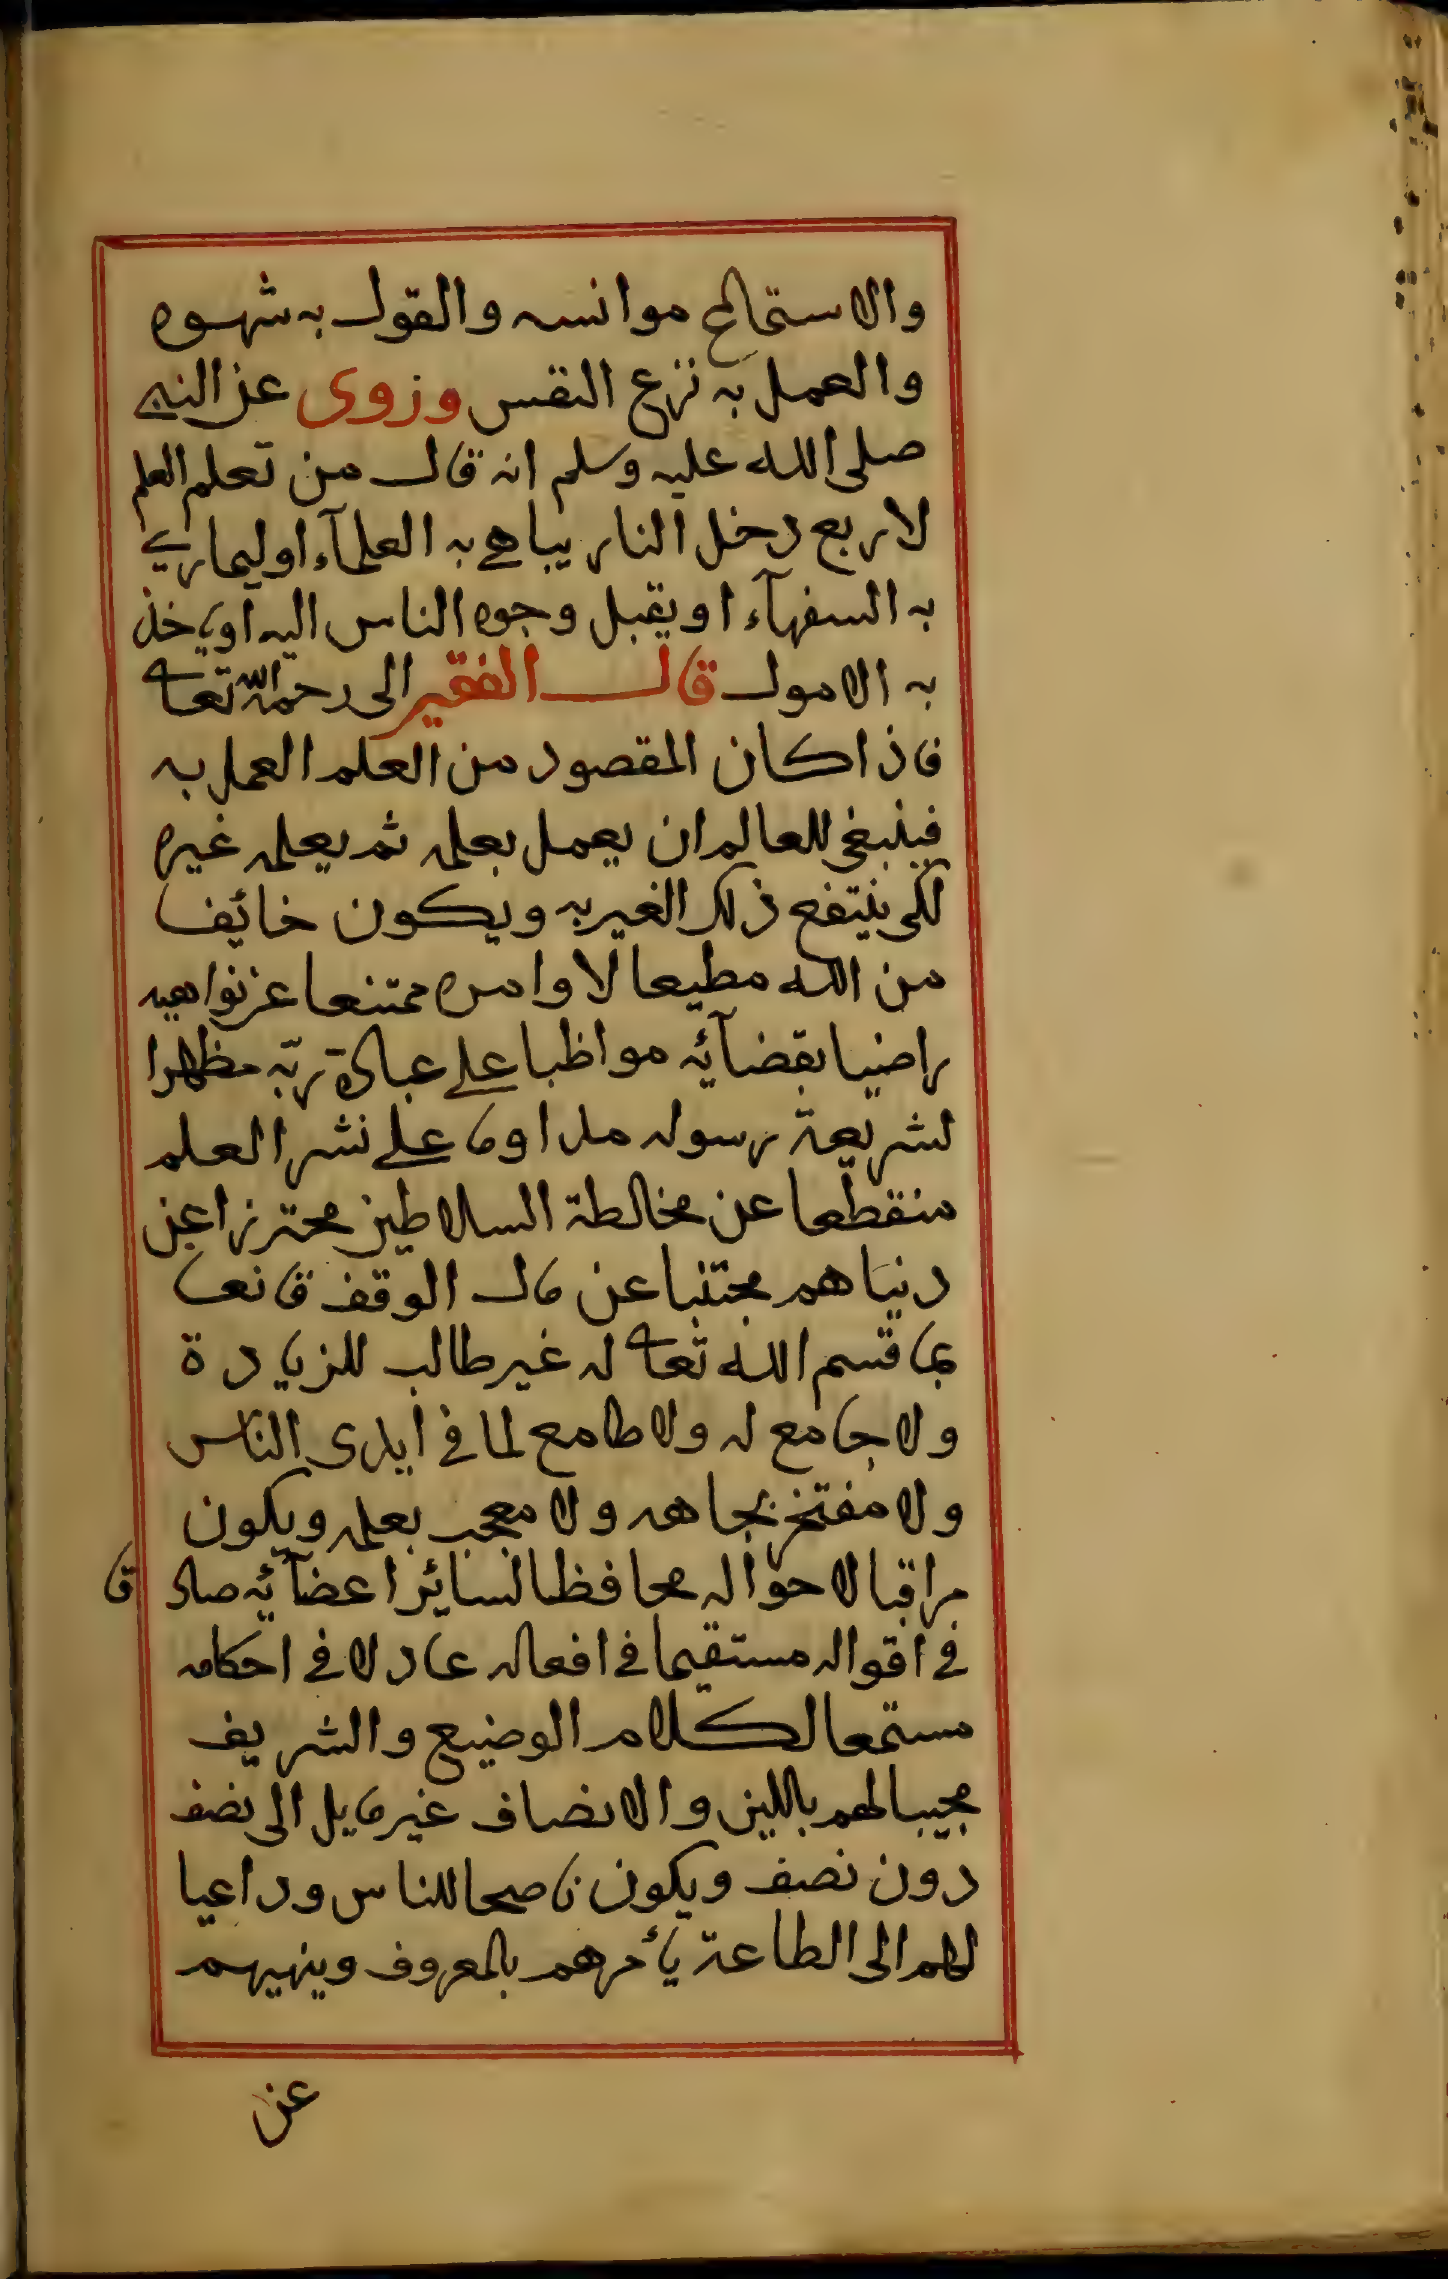 والاستماع موانسه والقول به شهوه
والعمل به نزع النفس وزوى عن النبي
صلى الله عليه وسلم انه قال من تعلم العلم
لاربع دخل النار يباهي به العلمآء او ليماري
به السفهآء او يقبل وجوه الناس اليه او ياخذ
به الاموال قال الفقير الى رحمة الله تعالى
فاذا كان المقصود من العلم العمل به
فينبغي للعالم ان يعمل بعلمه ثم يعلمه غيره
لكى ينتفع ذلك الغير به ويكون خائف
من الله مطيعا لاوامره ممتنعا عن نواهيه
راضيا بقضآئه مواظبا على عبادة ربه مظهرا
لشريعة رسوله مداوما على نشر العلم
منقطعا عن مخالطة السلاطين محترزا عن
دنياهم مجتنبا عن مال الوقف قانعا
بما قسم الله تعالى له غير طالب للزيادة
ولا جامع له ولا طامع لما في ايدى الناس
ولا مفتخر بجاهه ولا معجب بعلمه ويكون
مراقبا لاحواله محافظا لسائر اعضآئه صادقا
في اقواله مستقيما في افعاله عادلا في احكامه
مستمعا لكلام الوضيع والشريف
مجيبا لهم باللين والانصاف غير مايل الى نصف
دون نصف ويكون ناصحا للناس وداعيا
لهم الى الطاعة يأمرهم بالمعروف وينهيهم
عن